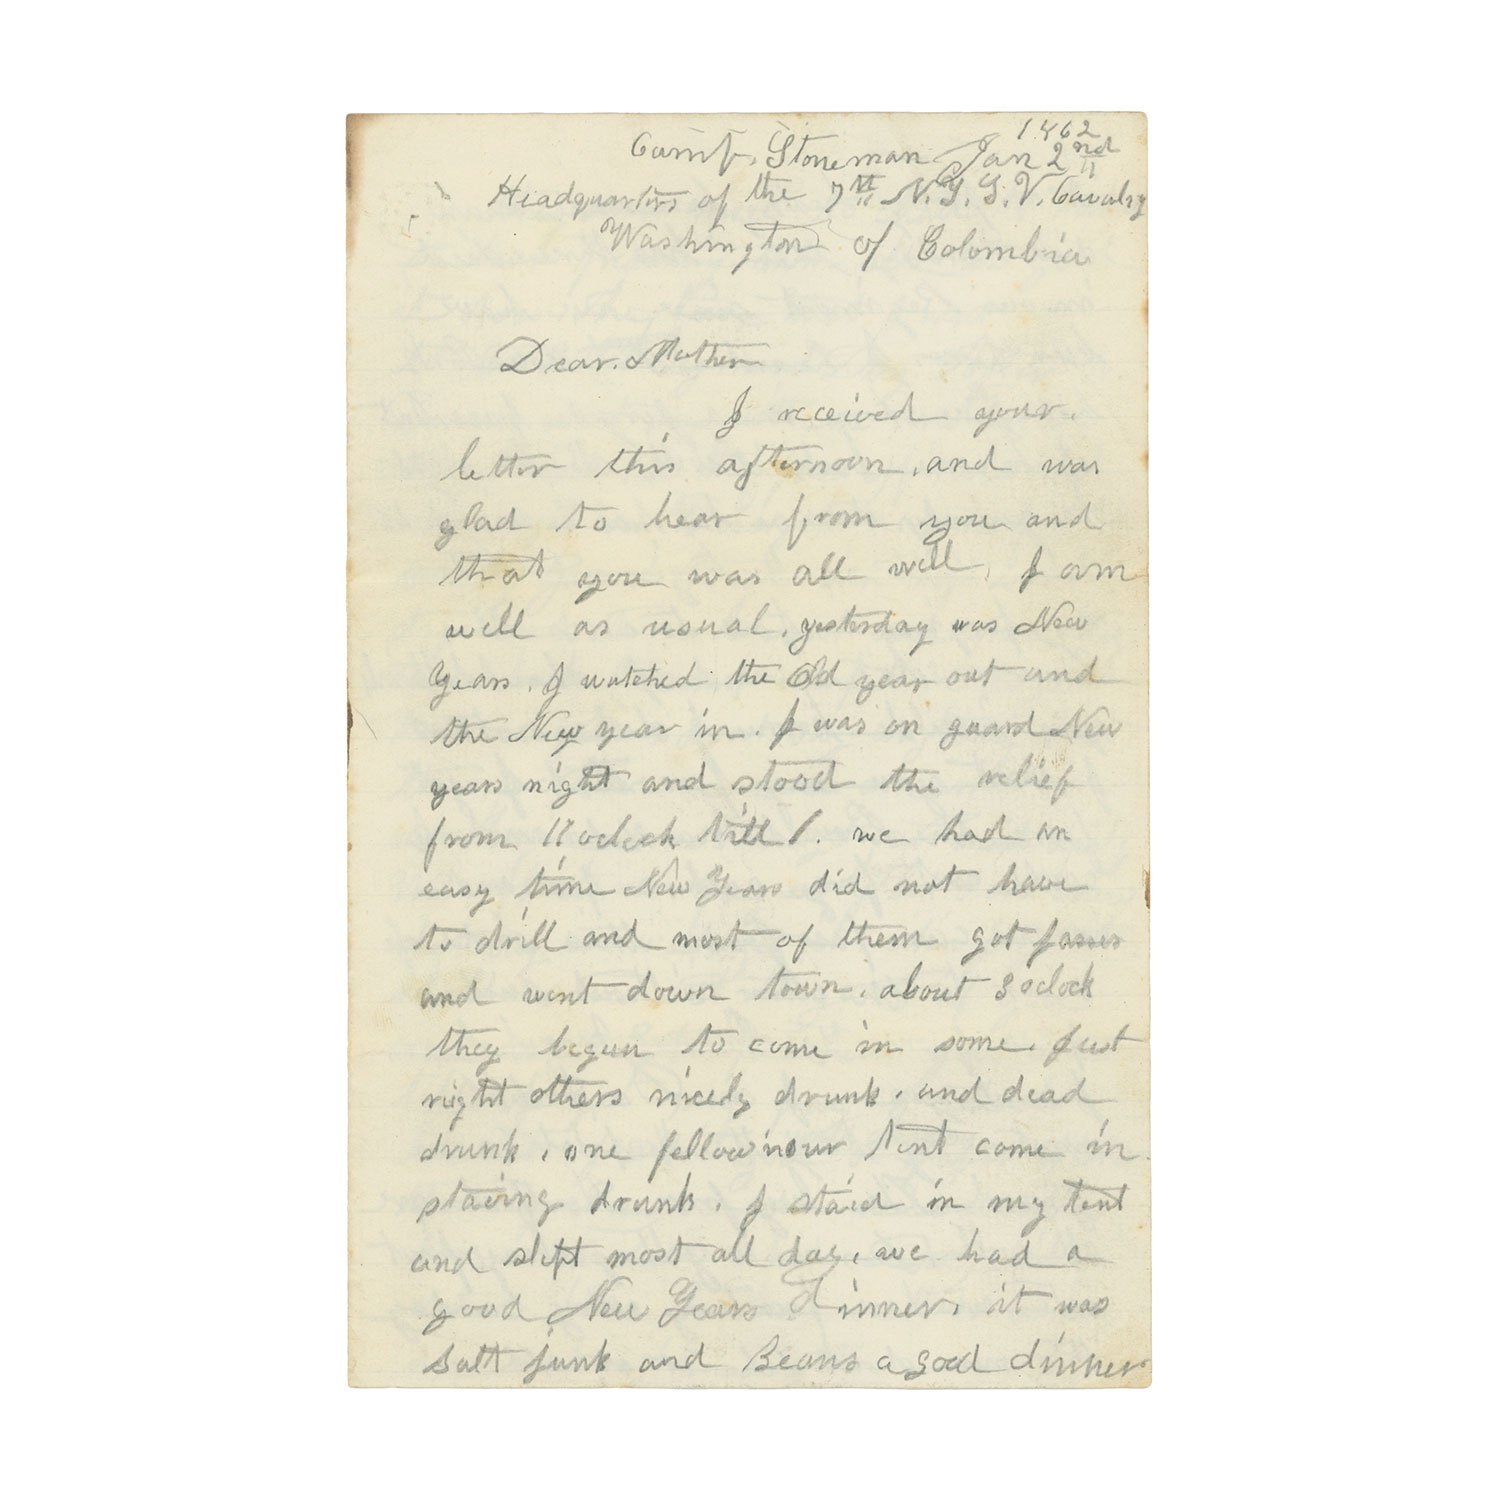 1862
Camp. Stoneman Jan 2nd
Headquarters of the 7th N.Y.S.V. Cavalry
Washington of Colombia
Dear. Mother
I received your.
letter this afternoon, and was
glad to hear from you and
that you was all well, I am
well as usual, yesterday was New
Years. I watched the Old year out and
the New year in. I was on guard New
years night and stood the relief
from 11 oclock till 1. we had an
easy time New Years did not have
to drill and most of them got passes
and went down town. about 3 oclock
they begun to come in some. Just
right others nicely drunk. and dead
drunk, one fellow in our tent come in
staving drunk. I staid in my tent
and slept most all day, we had a
good New Years dinner, it was
Salt junk and Beans a good dinner